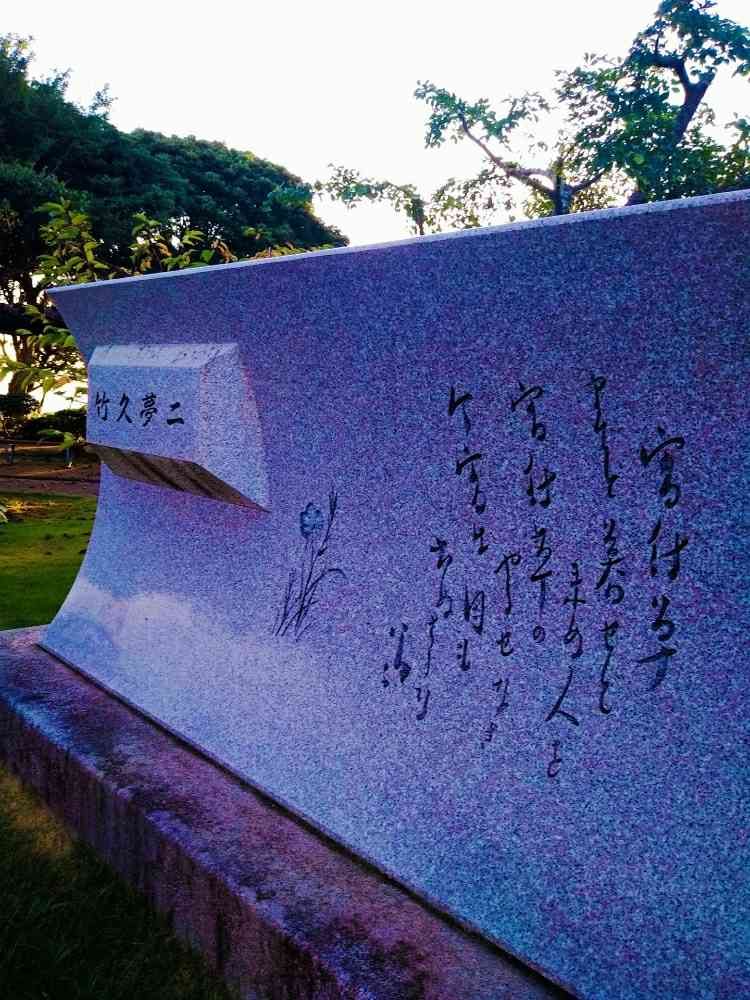 宵待草
まてど暮せど
来ぬ人を
宵待草の
やるせなさ
今宵は月も
出ぬさうな
竹久夢二